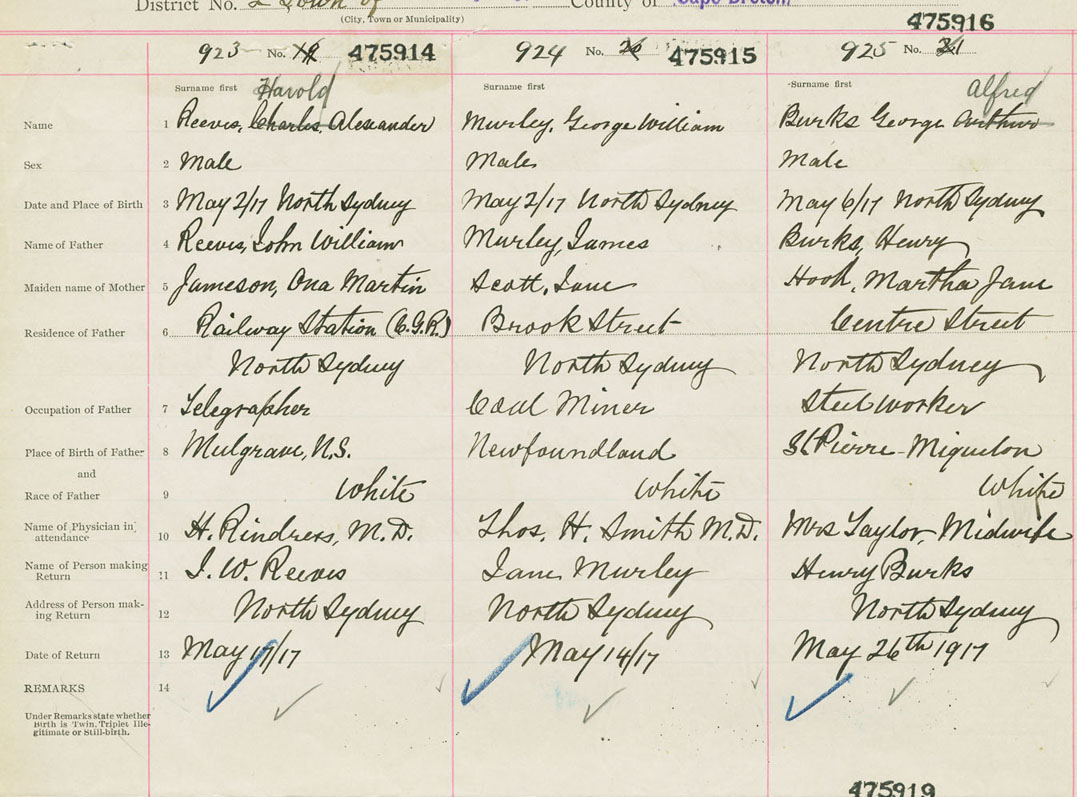 District No. 2 Town of County of Cape Breton
(City, Town or Municipality)
475916
923 No. 475914 924 No. 26 475915 925 No. 31
Surname first Harold Surname first Surname first Alfred
Name 1 Reeves, Charles Alexander Murley, George William Burks George Arthur
Sex 2 Male Male Male
Date and Place of Birth 3 May 2/17 North Sydney May 2/17 North Sydney May 6/17 North Sydney
Name of Father 4 Reeves, John William Murley, James Burks, Henry
Maiden name of Mother 5 Jameson, Ona Martin Scott, Jane Hook, Martha Jane
Residence of Father 6 Railway Station (C.G.R.) Brook Street Centre Street
North Sydney North Sydney North Sydney
Occupation of Father 7 Telegrapher Coal Miner Steel worker
Place of Birth of Father 8 Mulgrave, N.S. Newfoundland St Pierre-Miquelon
and
Race of Father 9 White White White
Name of Physician in attendance 10 H. Rindress, M.D. Thos. H. Smith M.D. Mrs Taylor, Midwife
Name of Person making Return 11 J. W. Reeves Jane Murley Henry Burks
Address of Person making Return 12 North Sydney North Sydney North Sydney
Date of Return 13 May /17 May 14/17 May 26th 1917
REMARKS 14
Under Remarks state whether
Birth is Twin, Triplet Ille-
gitimate or Still-birth.
475919